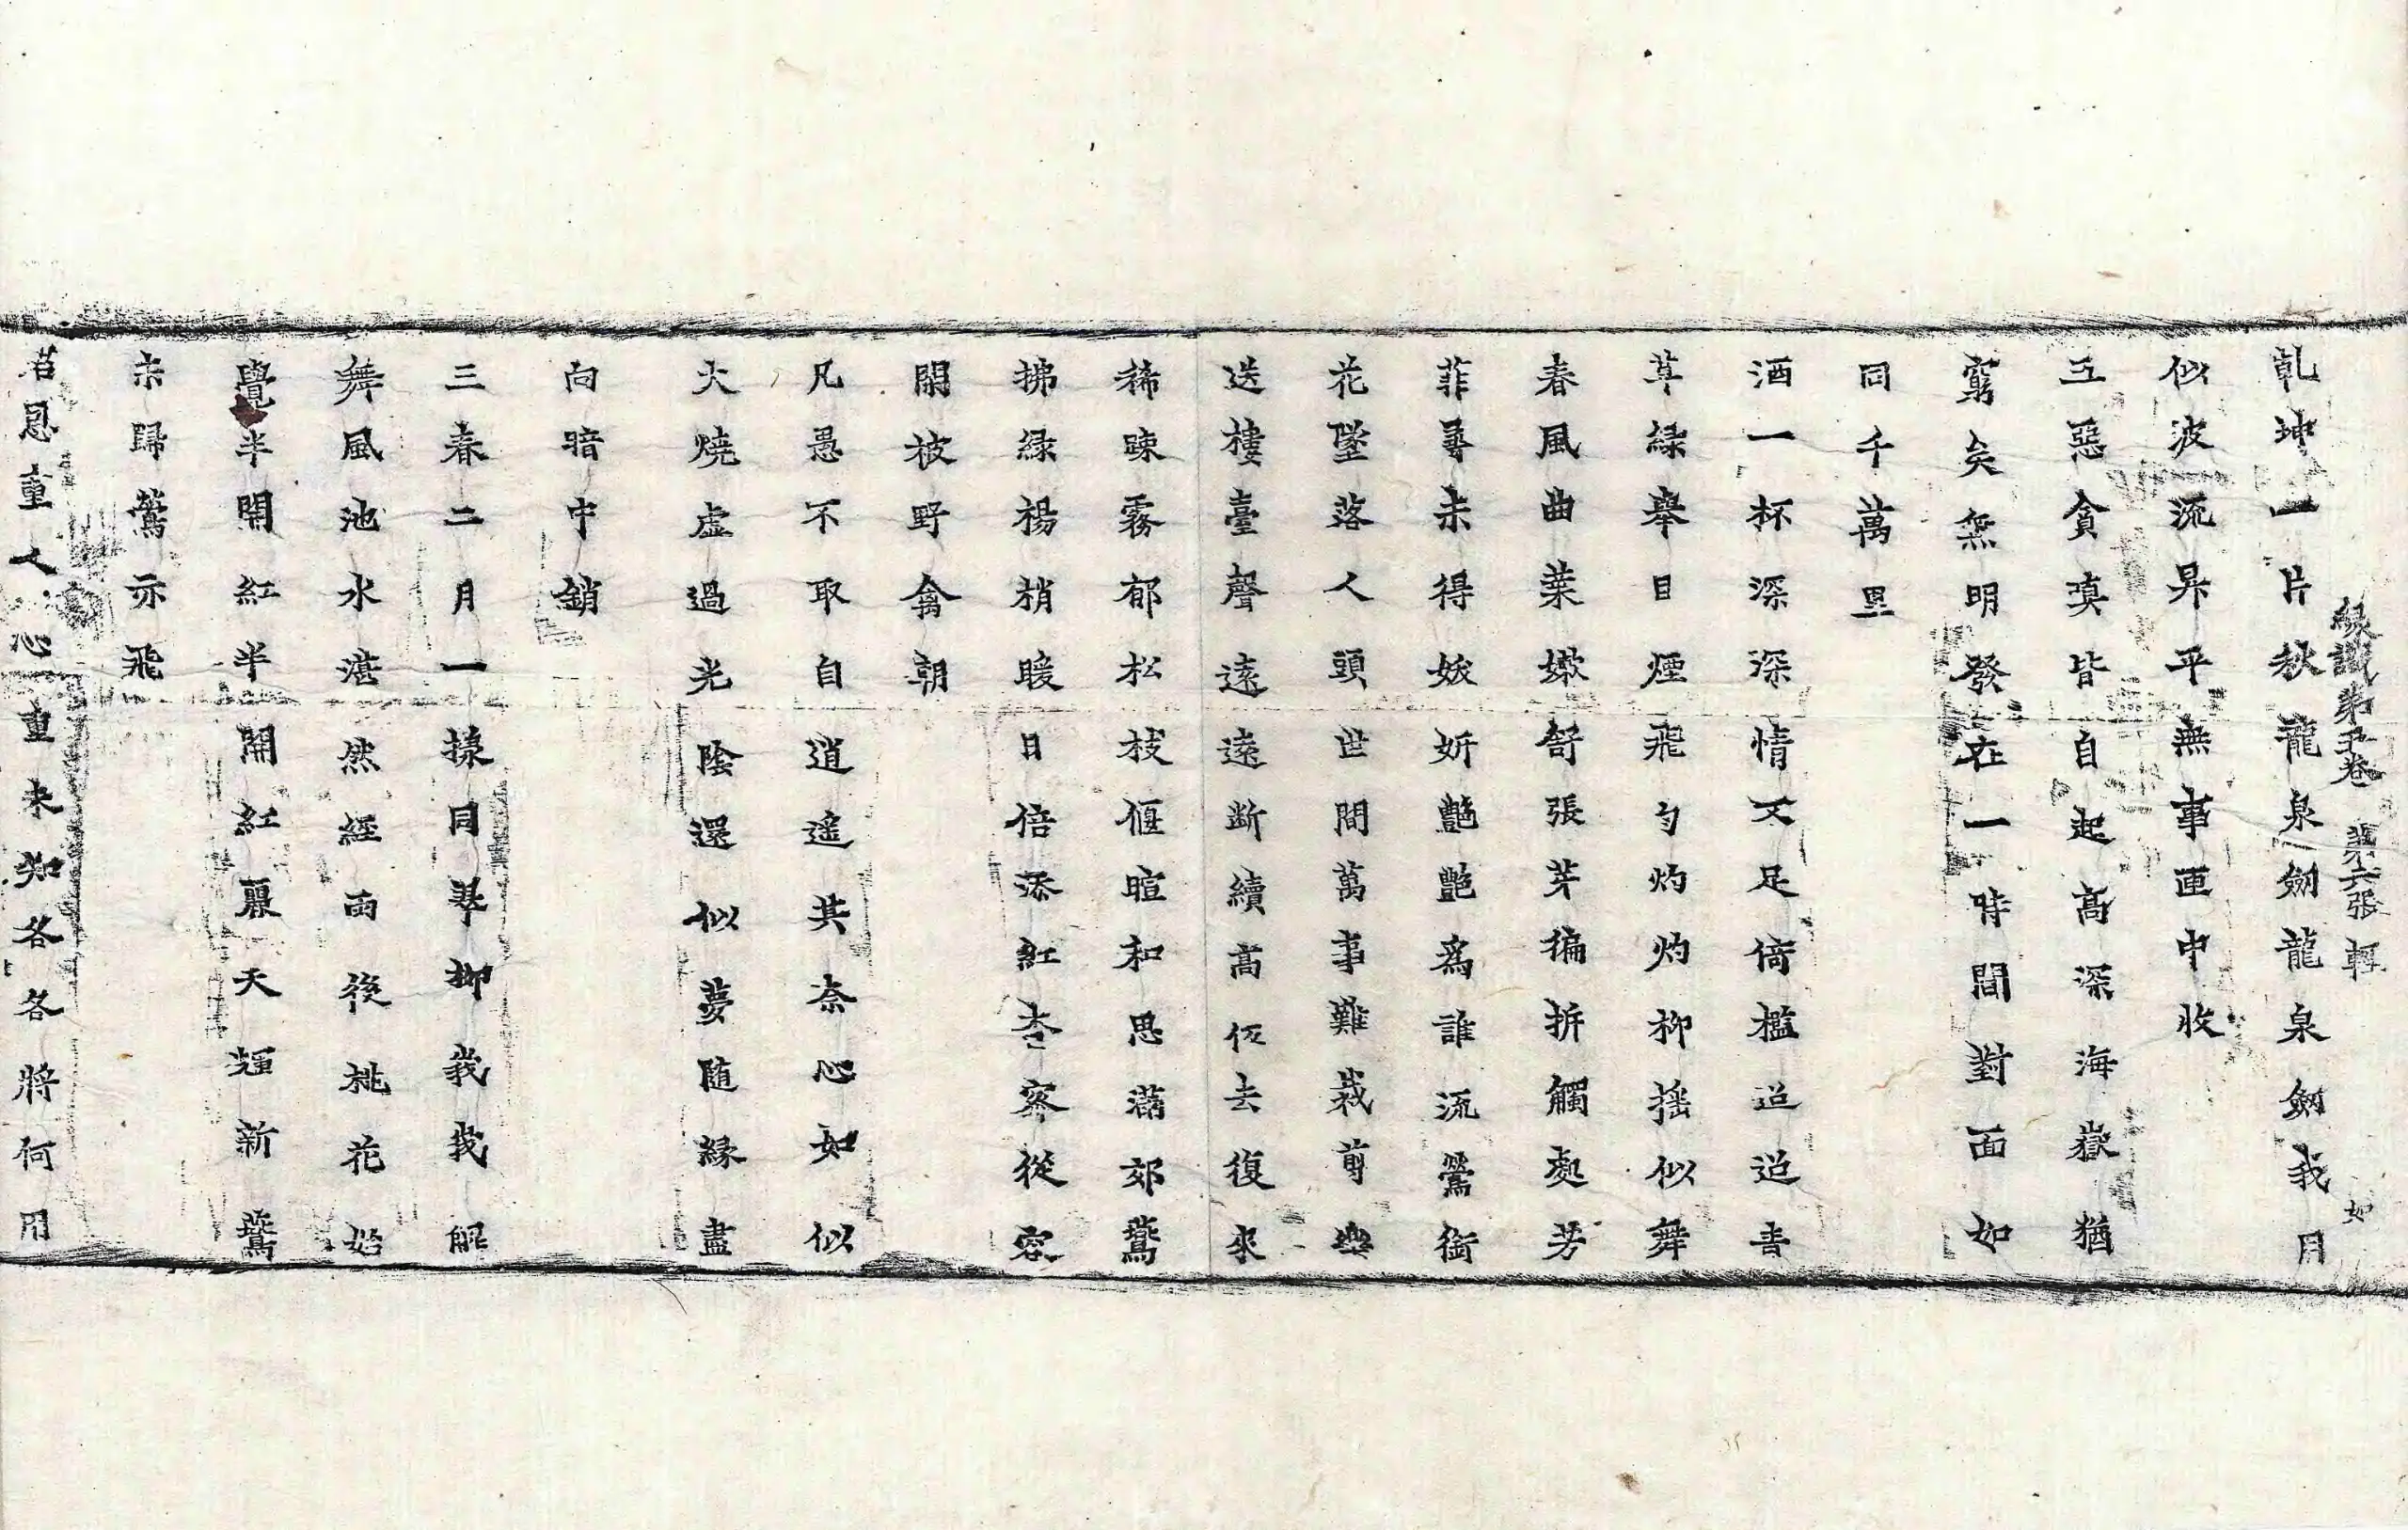 縁識第五卷 第六張 輕 如
乹坤一片秋龍泉劒龍泉劒我月
似波流昇平無事匣中收
五惡貪嗔皆自起高深海嶽猶
窮矣無明發在一時間對面如
同千萬里
酒一杯深深情又足倚檻迢迢青
草緑舉目煙飛勻灼灼柳揺似舞
春風曲葉嫰舒張芽徧拆觸處芳
菲尋未得妖妍艶艶為誰流鶯銜
花墜落人頭世間萬事難裁剪樂
送樓臺聲遠遠斷續高伭去復來
稀踈霧郁松枝偃暄和思滿郊鷰
拂緑楊梢暖日倍添紅杏寀從容
開被野禽朝
凡愚不取自逍遥共奈心如似
火燒虚過光陰還似夢随緣盡
向暗中銷
三春二月一㨾同翠柳我我觧
舞風池水湛然經雨後桃花始
覺半開紅半開紅麗天輝新鷰
未歸鶯亦飛
君恩重人心重未知各各將何用